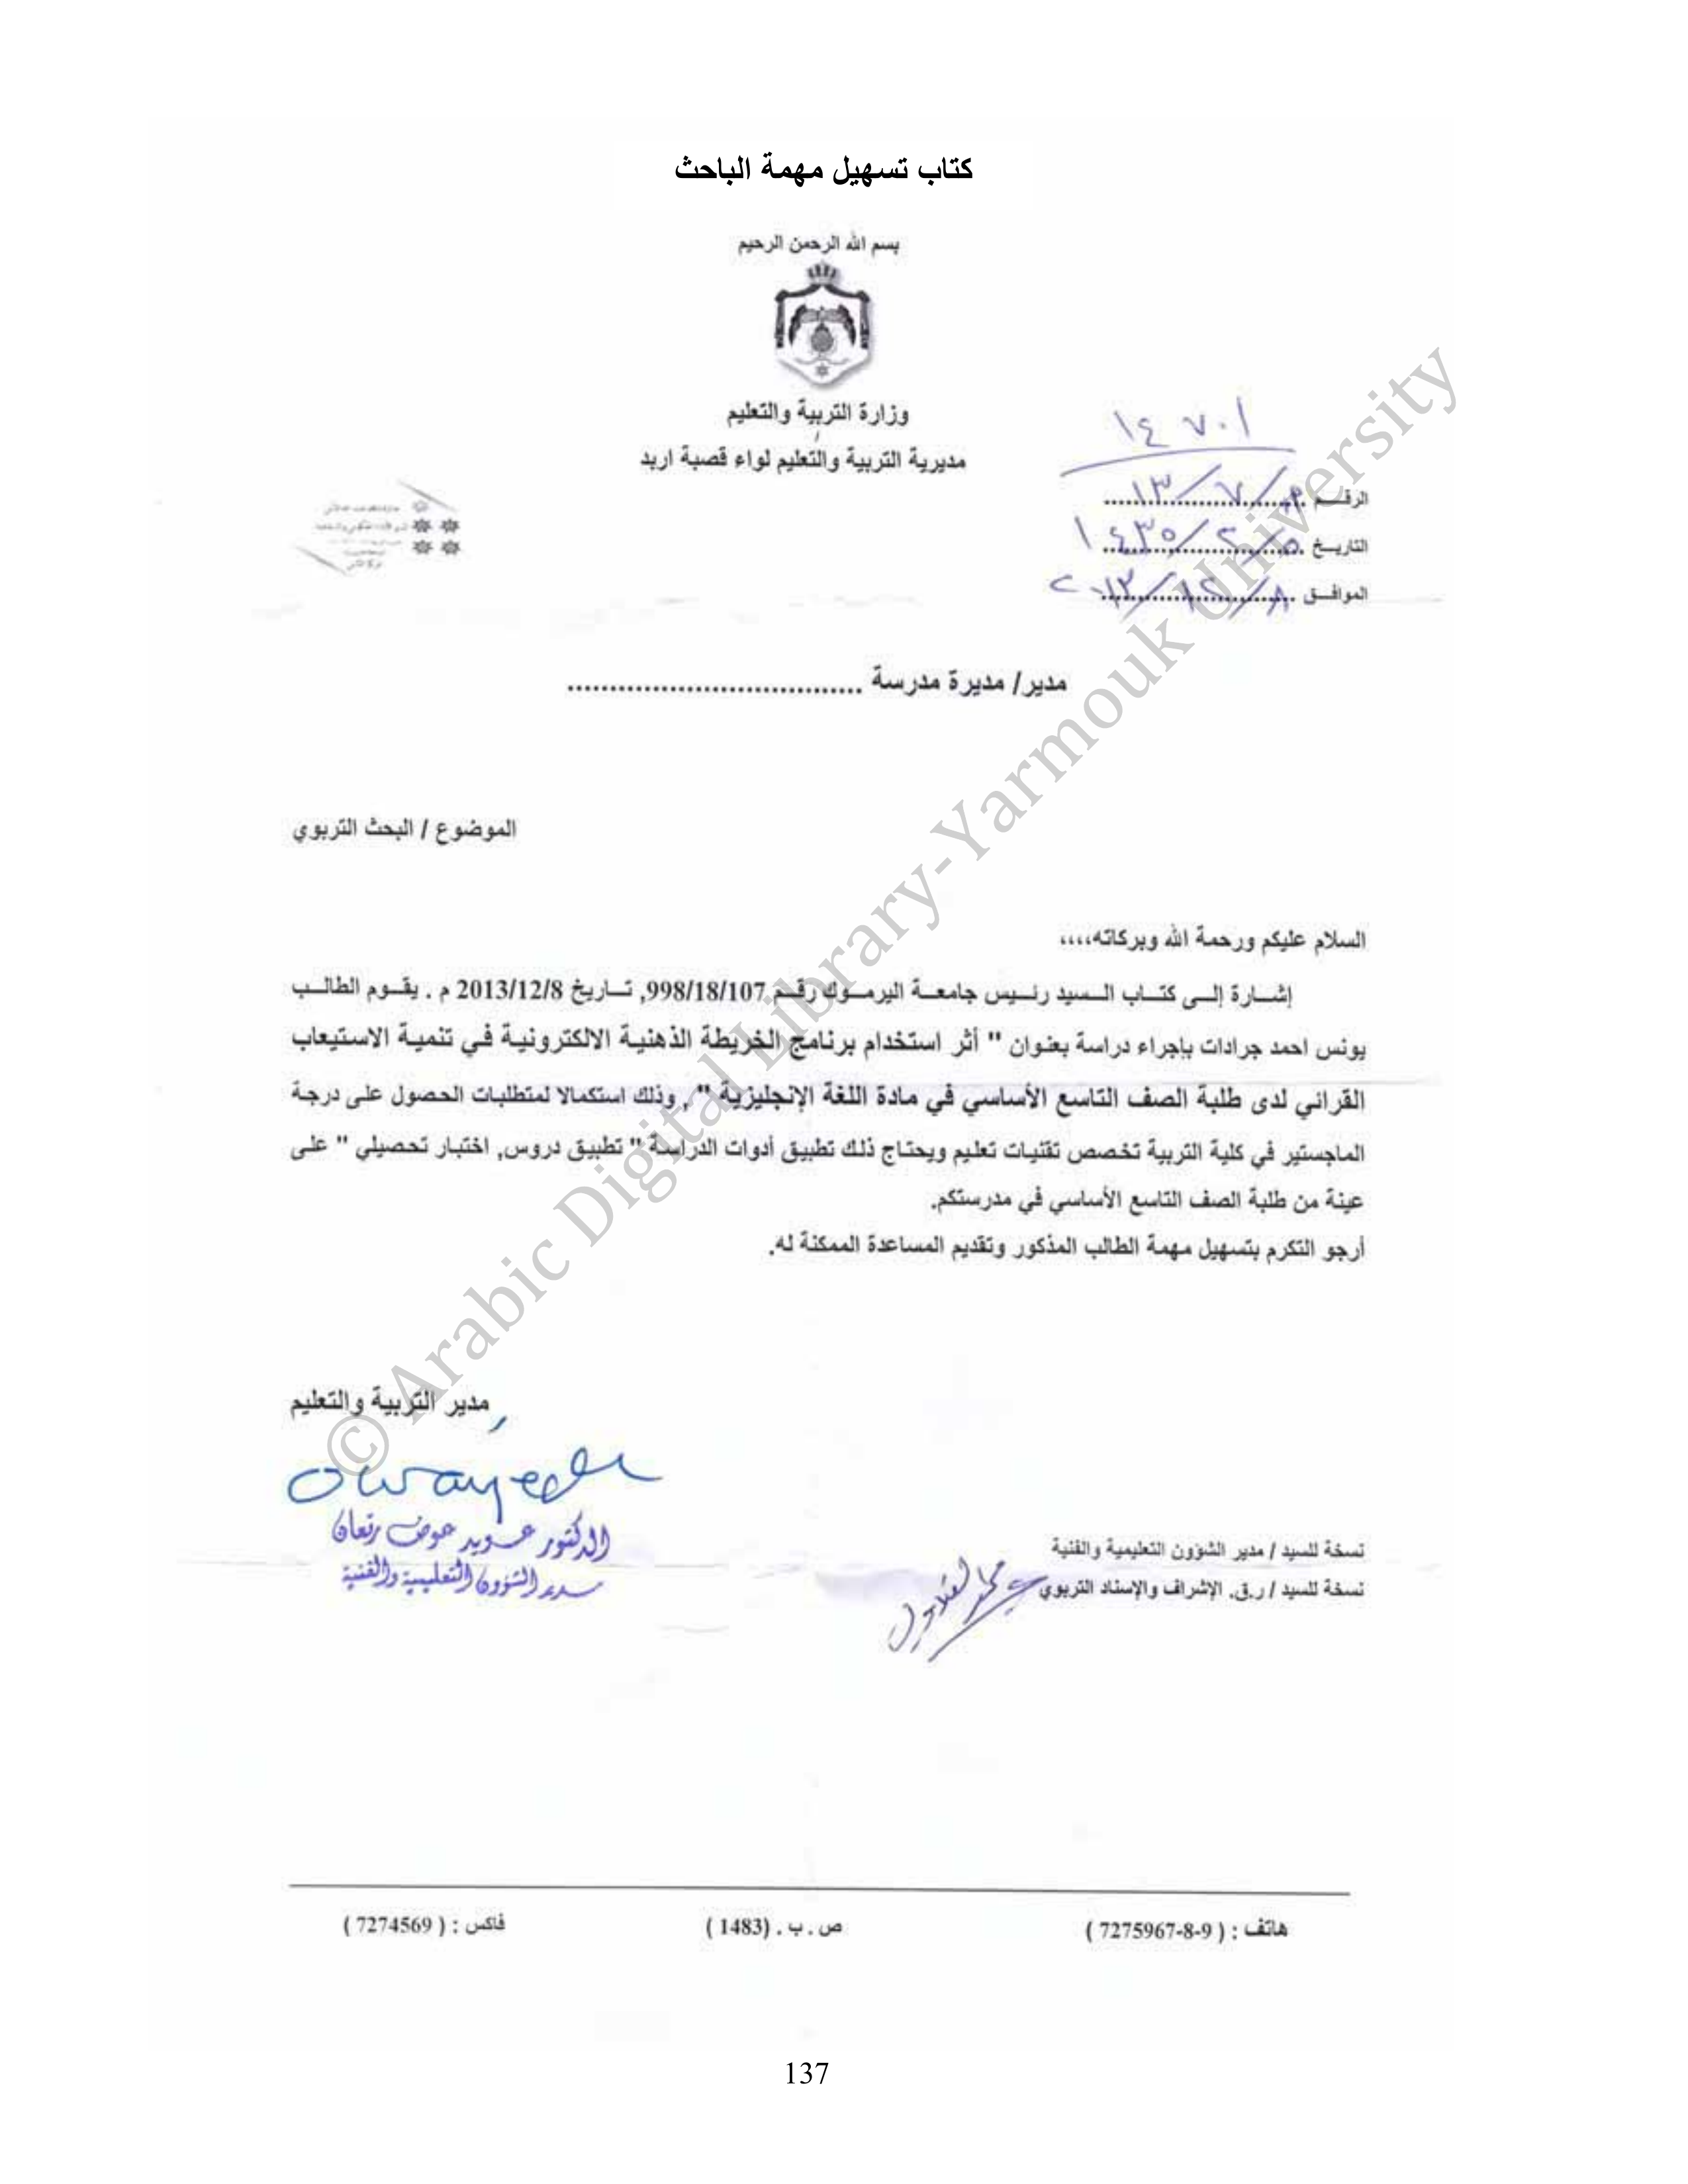 كتاب تسهيل مهمة الباحث
بسم الله الرحمن الرحيم
وزارة التربية والتعليم
مديرية التربية والتعليم لواء قصبة اربد
١٤٧٠١
الرقـــم م/٧/١٣
التاريـخ ٥/٢/١٤٣٥
الموافـق ٨/١٢/٢٠١٣
مدير/ مديرة مدرسة ..................................
الموضوع / البحث التربوي
السلام عليكم ورحمة الله وبركاته،،،،
إشـــارة إلـــى كتـــاب الـــسيد رئـــيس جامعـــة اليرمـــوك رقـــم 998/18/107, تـــاريخ 2013/12/8 م . يقـــوم الطالـــب
يونس احمد جرادات بإجراء دراسة بعنوان " أثر استخدام برنامج الخريطة الذهنية الالكترونية في تنمية الاستيعاب
القرائي لدى طلبة الصف التاسع الأساسي في مادة اللغة الإنجليزية " , وذلك استكمالا لمتطلبات الحصول على درجة
الماجستير في كلية التربية تخصص تقنيات تعليم ويحتاج ذلك تطبيق أدوات الدراسة " تطبيق دروس, اختبار تحصيلي " على
عينة من طلبة الصف التاسع الأساسي في مدرستكم.
أرجو التكرم بتسهيل مهمة الطالب المذكور وتقديم المساعدة الممكنة له.
مدير التربية والتعليم
الدكتور عويد عوض
مدير الشؤون التعليمية والفنية
نسخة للسيد / مدير الشؤون التعليمية والفنية
نسخة للسيد / ر.ق. الإشراف والإسناد التربوي
هاتف : ( 9-8-7275967 ) ص . ب . (1483 ) فاكس : ( 7274569 )
137
© Arabic Digital Library-Yarmouk University